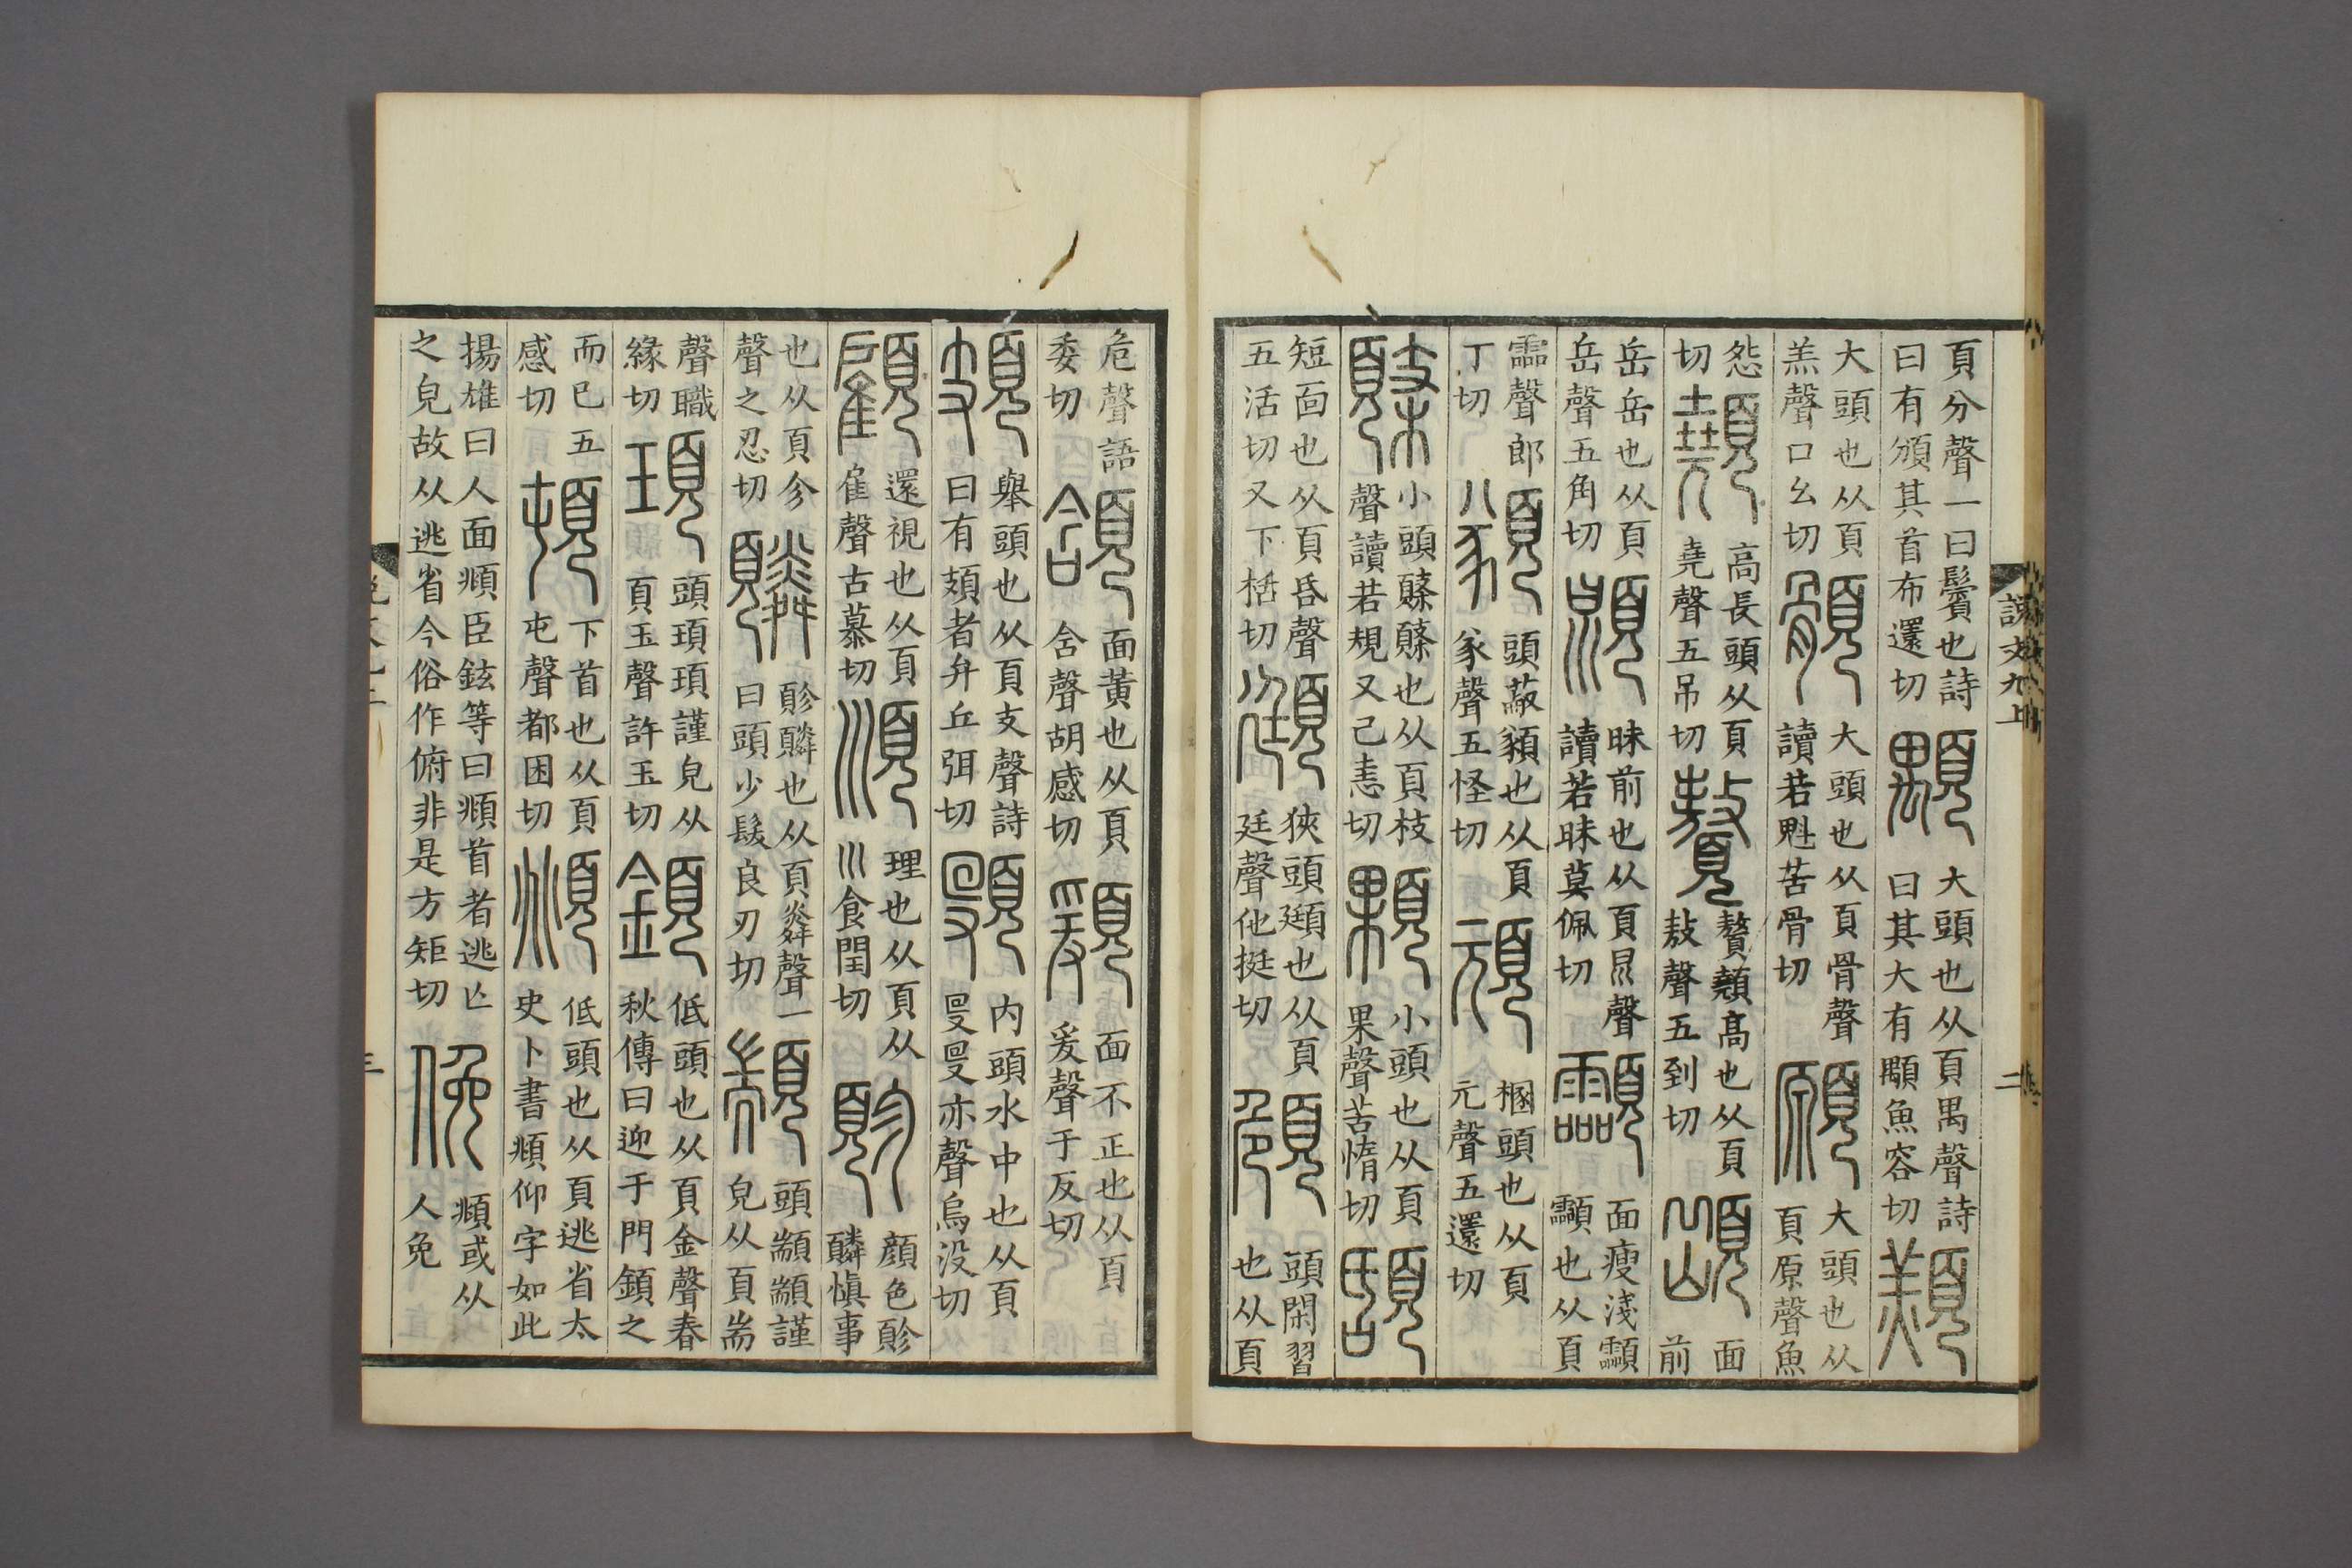 頁分聲一曰鬢也詩
曰有頒其首布還切
顒
大頭也从頁禺聲詩
曰其大有顒魚容切
大頭也从頁
羔聲口幺切
顝
大頭也从頁骨聲
讀若魁苦骨切
願
大頭也从
頁原聲魚
怨
切
顤
高長頭从頁
堯聲五弔切
贅顤高也从頁
敖聲五到切
面
前
岳岳也从頁
岳聲五角切
昧前也从頁㫐聲
讀若昧莫佩切
面瘦淺
也从頁
霝聲郎
丁切
頭蔽也从頁
聲五怪切
頑
㮯頭也从頁
元聲五還切
小頭也从頁枝
聲讀若規又己恚切
顆
小頭也从頁
果聲苦惰切
短面也从頁𠯑聲
五活切又下栝切
頲
狹頭頲也从頁
廷聲他挺切
頠
頭閑習
也从頁
危聲語
委切
頷
面黃也从頁
含聲胡感切
面不正也从頁
爰聲于反切
頍
舉頭也从頁支聲詩
曰有頍者弁丘弭切
内頭水中也从頁
𠬸𠬸亦聲烏没切
顧
還視也从頁
雇聲古慕切
順
理也从頁从
巛食閏切
顏色㐱頁
慎事
也从頁㐱
聲之忍切
也从頁粦聲一
曰頭少髮良刃切
顓
頭顓顓謹
皃从頁耑
聲職
緣切
頊
頭頊頊謹皃从
頁玉聲許玉切
顉
低頭也从頁金聲春
秋傳曰迎于門顉之
而已五
感切
頓
下首也从頁
屯聲都困切
頫
低頭也从頁逃省太
史卜書頫仰字如此
揚雄曰人面頫臣鉉等曰頫首者逃亾
之皃故从逃省今俗作俯非是方矩切
俛
頫或从
人免
說文九上
二
三